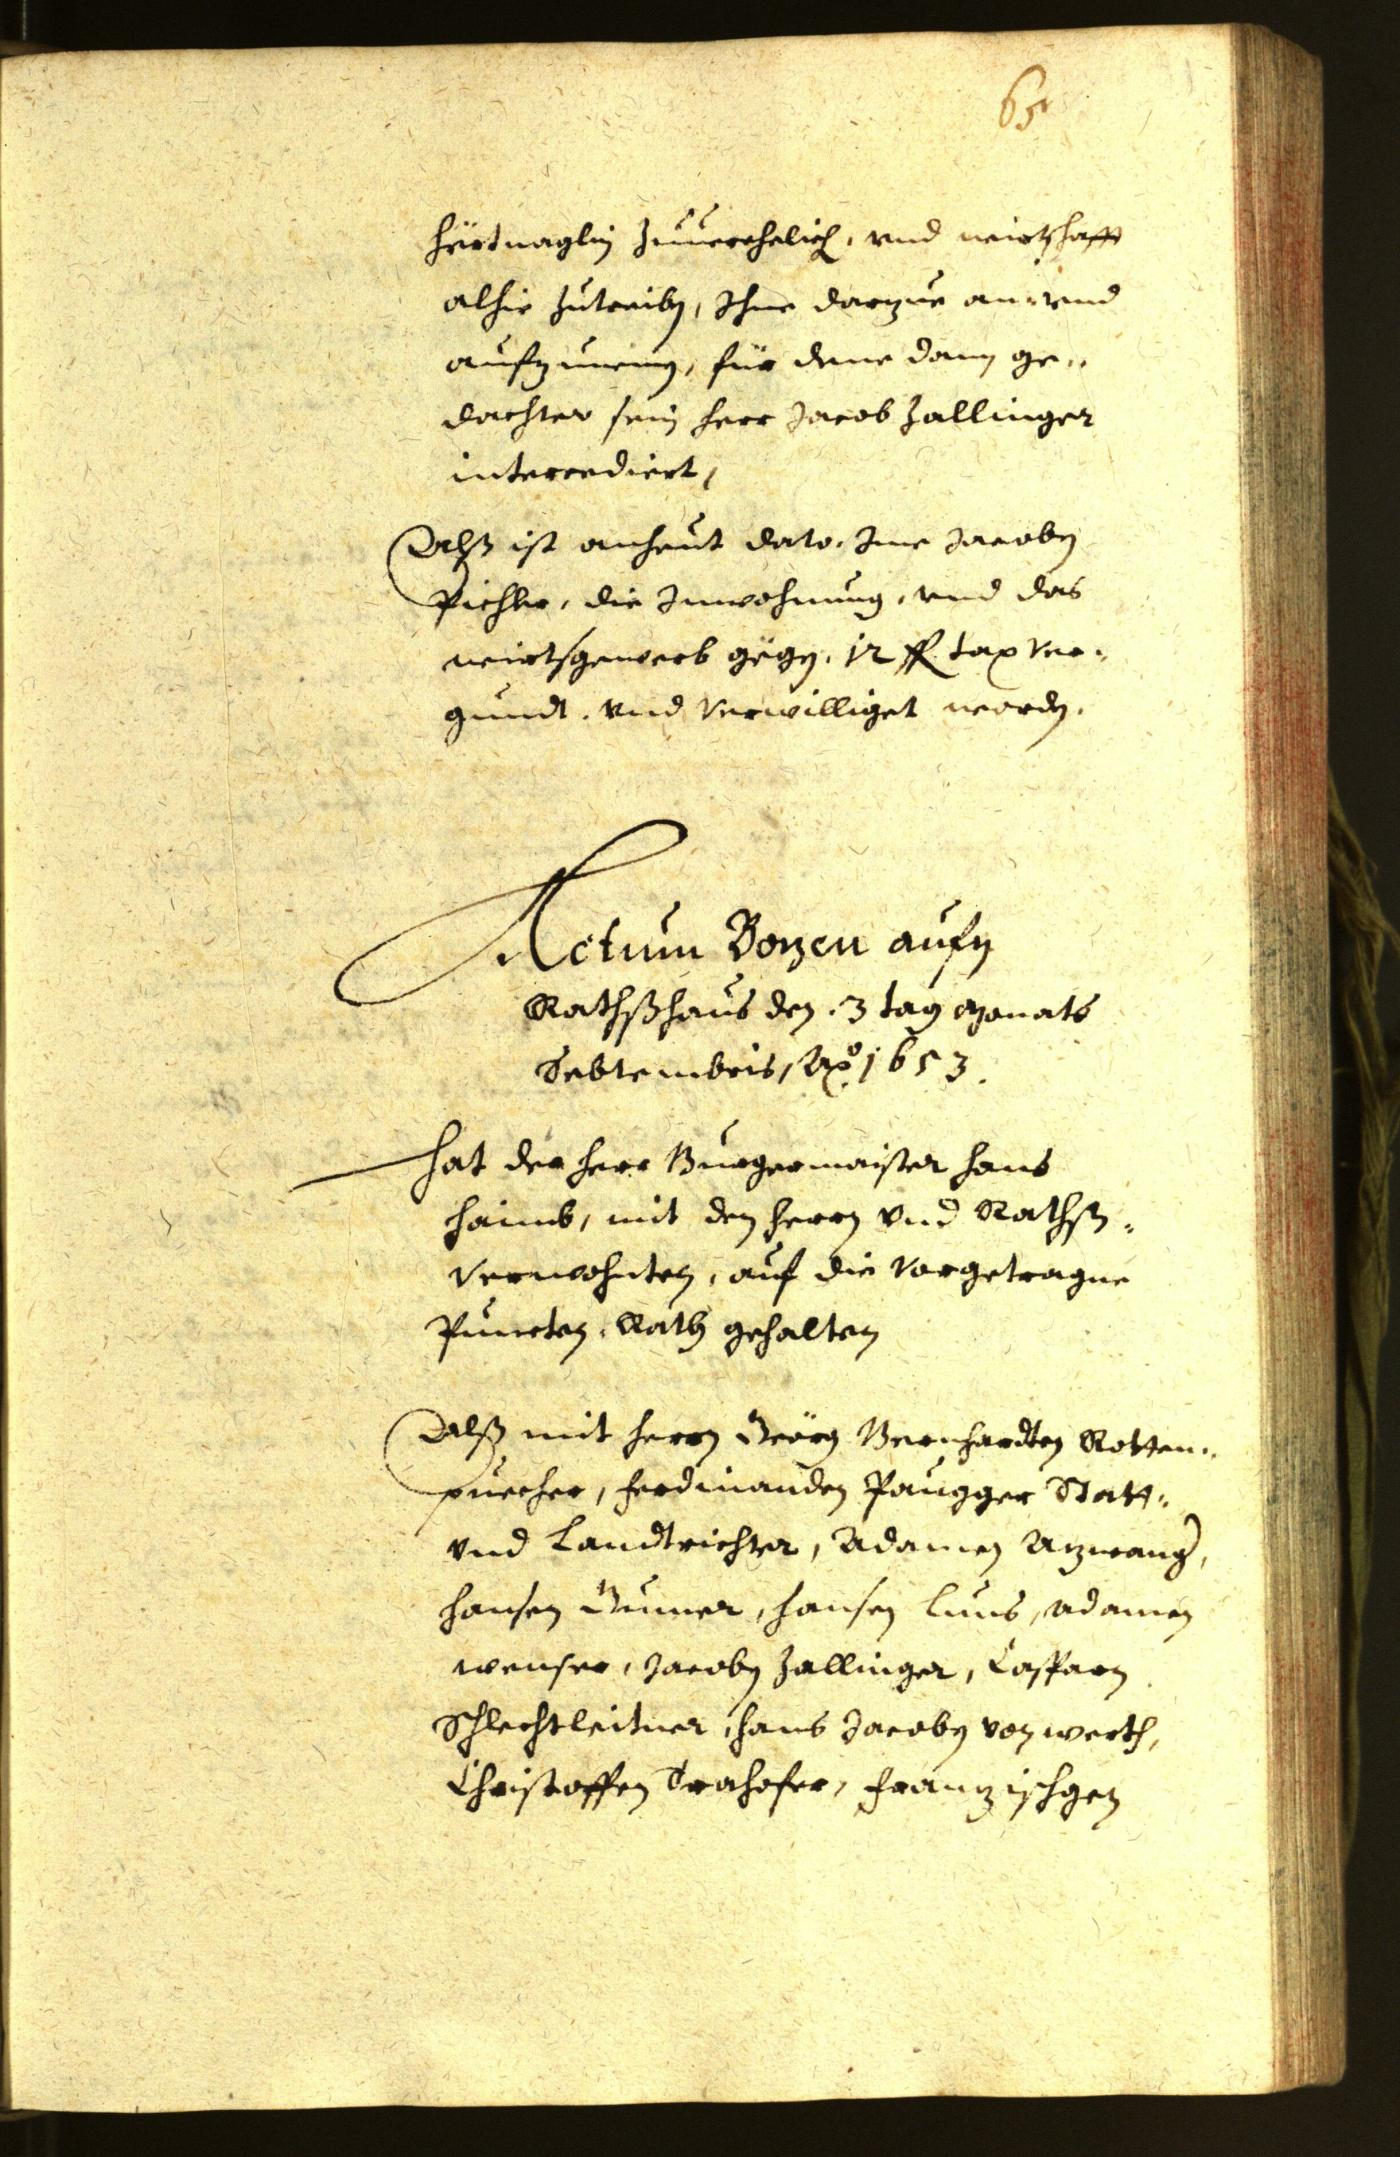 65
hürtnaglin zuuerehelich, vnd wirtshafft
alhie zutreiben, Ihne darzue an- vnd
aufzunemen, für dene dann ge-
dachter sein herr Jacob Zallinger
intercediert,
Alß ist anheut dato. Ime Jacoben
Pichler, die Inwohnung, vnd das
wirtsgewerb gegen. 12 fl tax ver-
gundt. vnd verwilliget worden.
Actum Bozen aufn
Rathßhaus den .3 tag Monats
Sebtembris, Ao 1653.
Hat der herr Burgermaister hans
haimb, mit den herrn vnd Rathß-
verwohnten, auf die vorgetragne
Puncten. Rath gehalten
Alß mit herrn Geörg Bernhardten Rotten-
puecher, ferdinanden Paugger Statt-
vnd Landtrichter, Adamen Azwang,
hansen Gumer, hansen Luns, Adamen
wenser, Jacoben Zallinger, Casparn
Schlechtleitner, hans Jacoben von werth,
Christoffen Trahofer, Franz ischgen